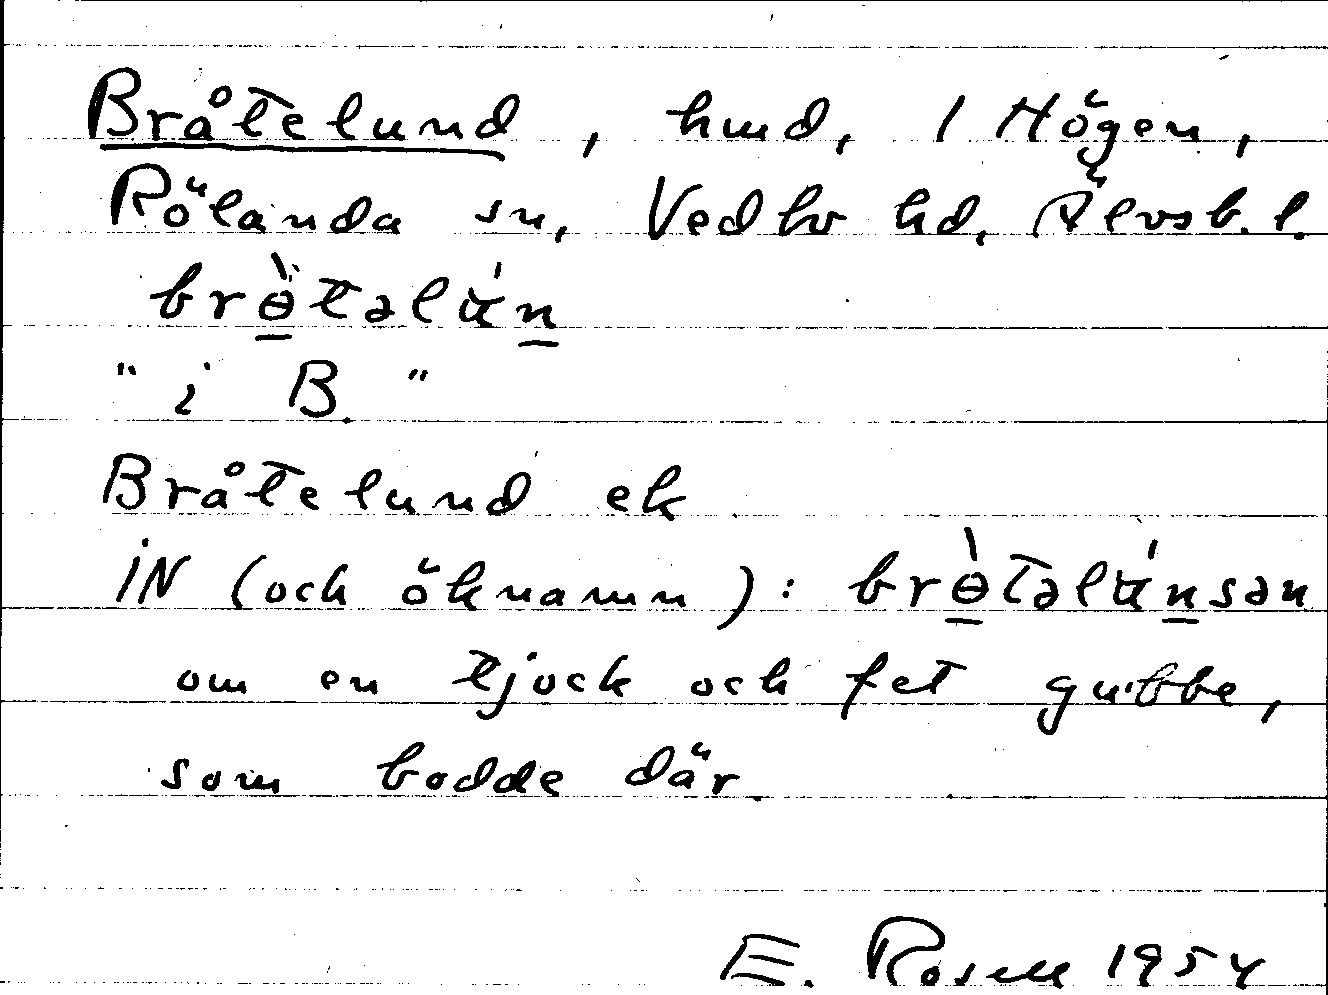 Bråtelund, hmd, 1 Högen,
Rölanda sn, Vedbo hd, Älvsb. l.
brɵ̀təlʉ́n
"i B."
Bråtelund ek
iN (och öknamn): brɵ̀təlʉ́nsən
om en tjock och fet gubbe,
som bodde där.
E. Rosell 1954